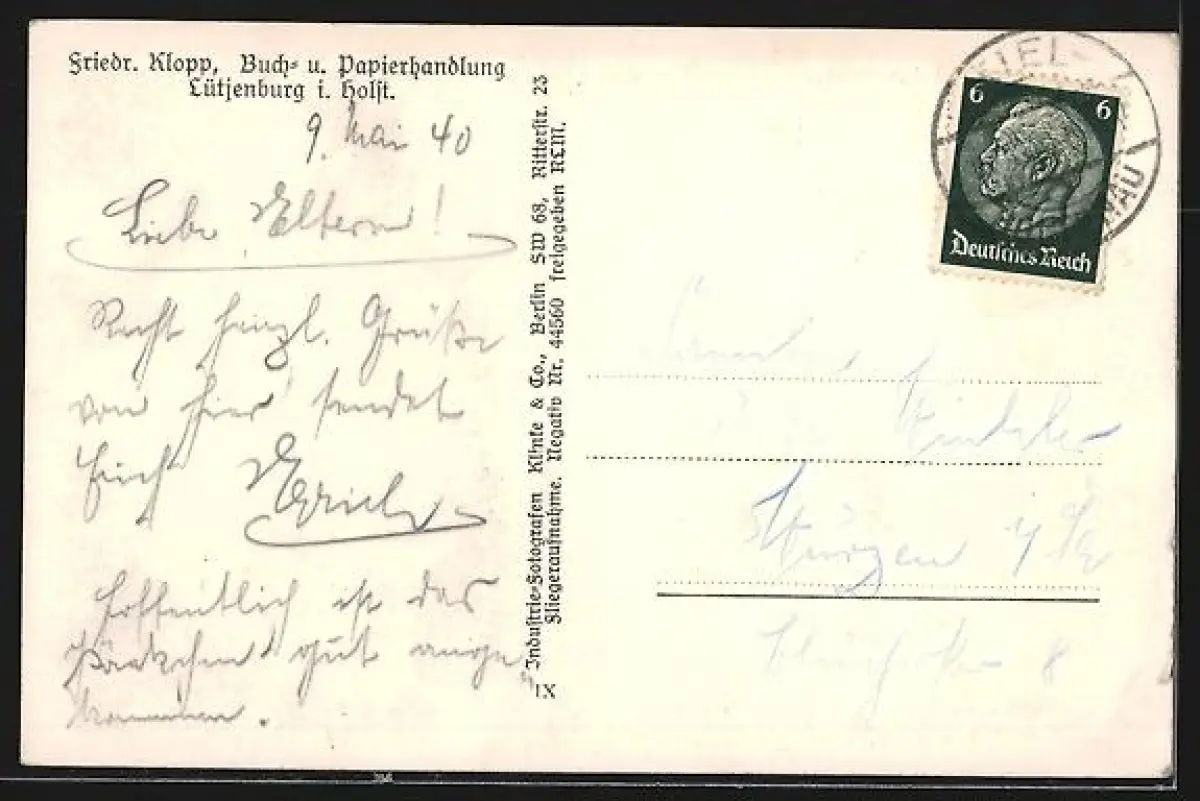 Friedr. Klopp, Buch- u. Papierhandlung
Lütjenburg i. Holst.
9. Mai 40
Liebe Eltern!
Recht herzl. Grüße
von hier sendet
Euch Erich
Hoffentlich ist das
Päckchen gut ange
kommen.
Industrie-Fotografen Klinke & Co., Berlin SW 68, Ritterstr. 23
Fliegeraufnahme. Negativ Nr. 44560 freigegeben RLM.
IX
KIEL-
6 6
Deutsches Reich
Wurzen
8